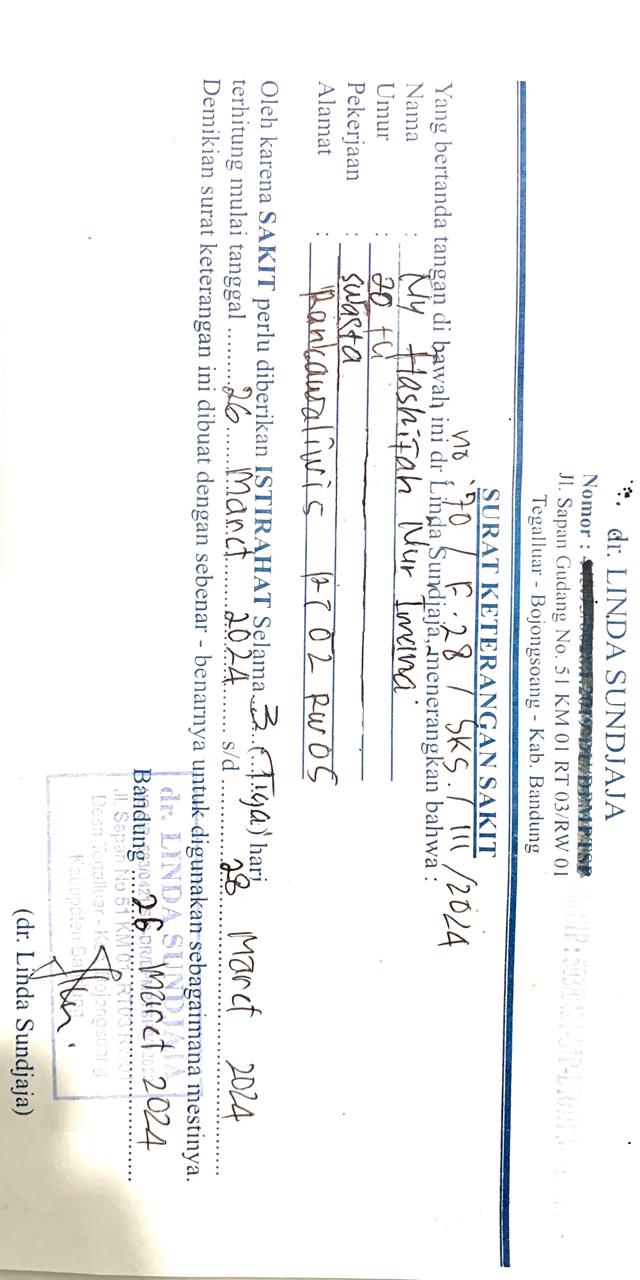 dr. LINDA SUNDJAJA
Nomor :
Jl. Sapan Gudang No. 51 KM 01 RT 03/RW 01
Tegalluar - Bojongsoang - Kab. Bandung
SURAT KETERANGAN SAKIT
no : 70 / F.28 / SKS. / III / 2024
Yang bertanda tangan di bawah ini dr Linda Sundjaja, menerangkan bahwa :
Nama : Ny Hashifah Nur Imana
Umur : 20 th
Pekerjaan : swasta
Alamat : Rankawaliwis RT 02 RW 05
Oleh karena SAKIT perlu diberikan ISTIRAHAT Selama 3 (Tiga) hari
terhitung mulai tanggal 26 Maret 2024 s/d 28 Maret 2024
Demikian surat keterangan ini dibuat dengan sebenar - benarnya untuk digunakan sebagaimana mestinya.
Bandung 26 Maret 2024
dr. LINDA SUNDJAJA
Jl. Sapan No 51 KM 01 RT 03
Desa Tegalluar - Bojongsoang
Kabupaten
(dr. Linda Sundjaja)